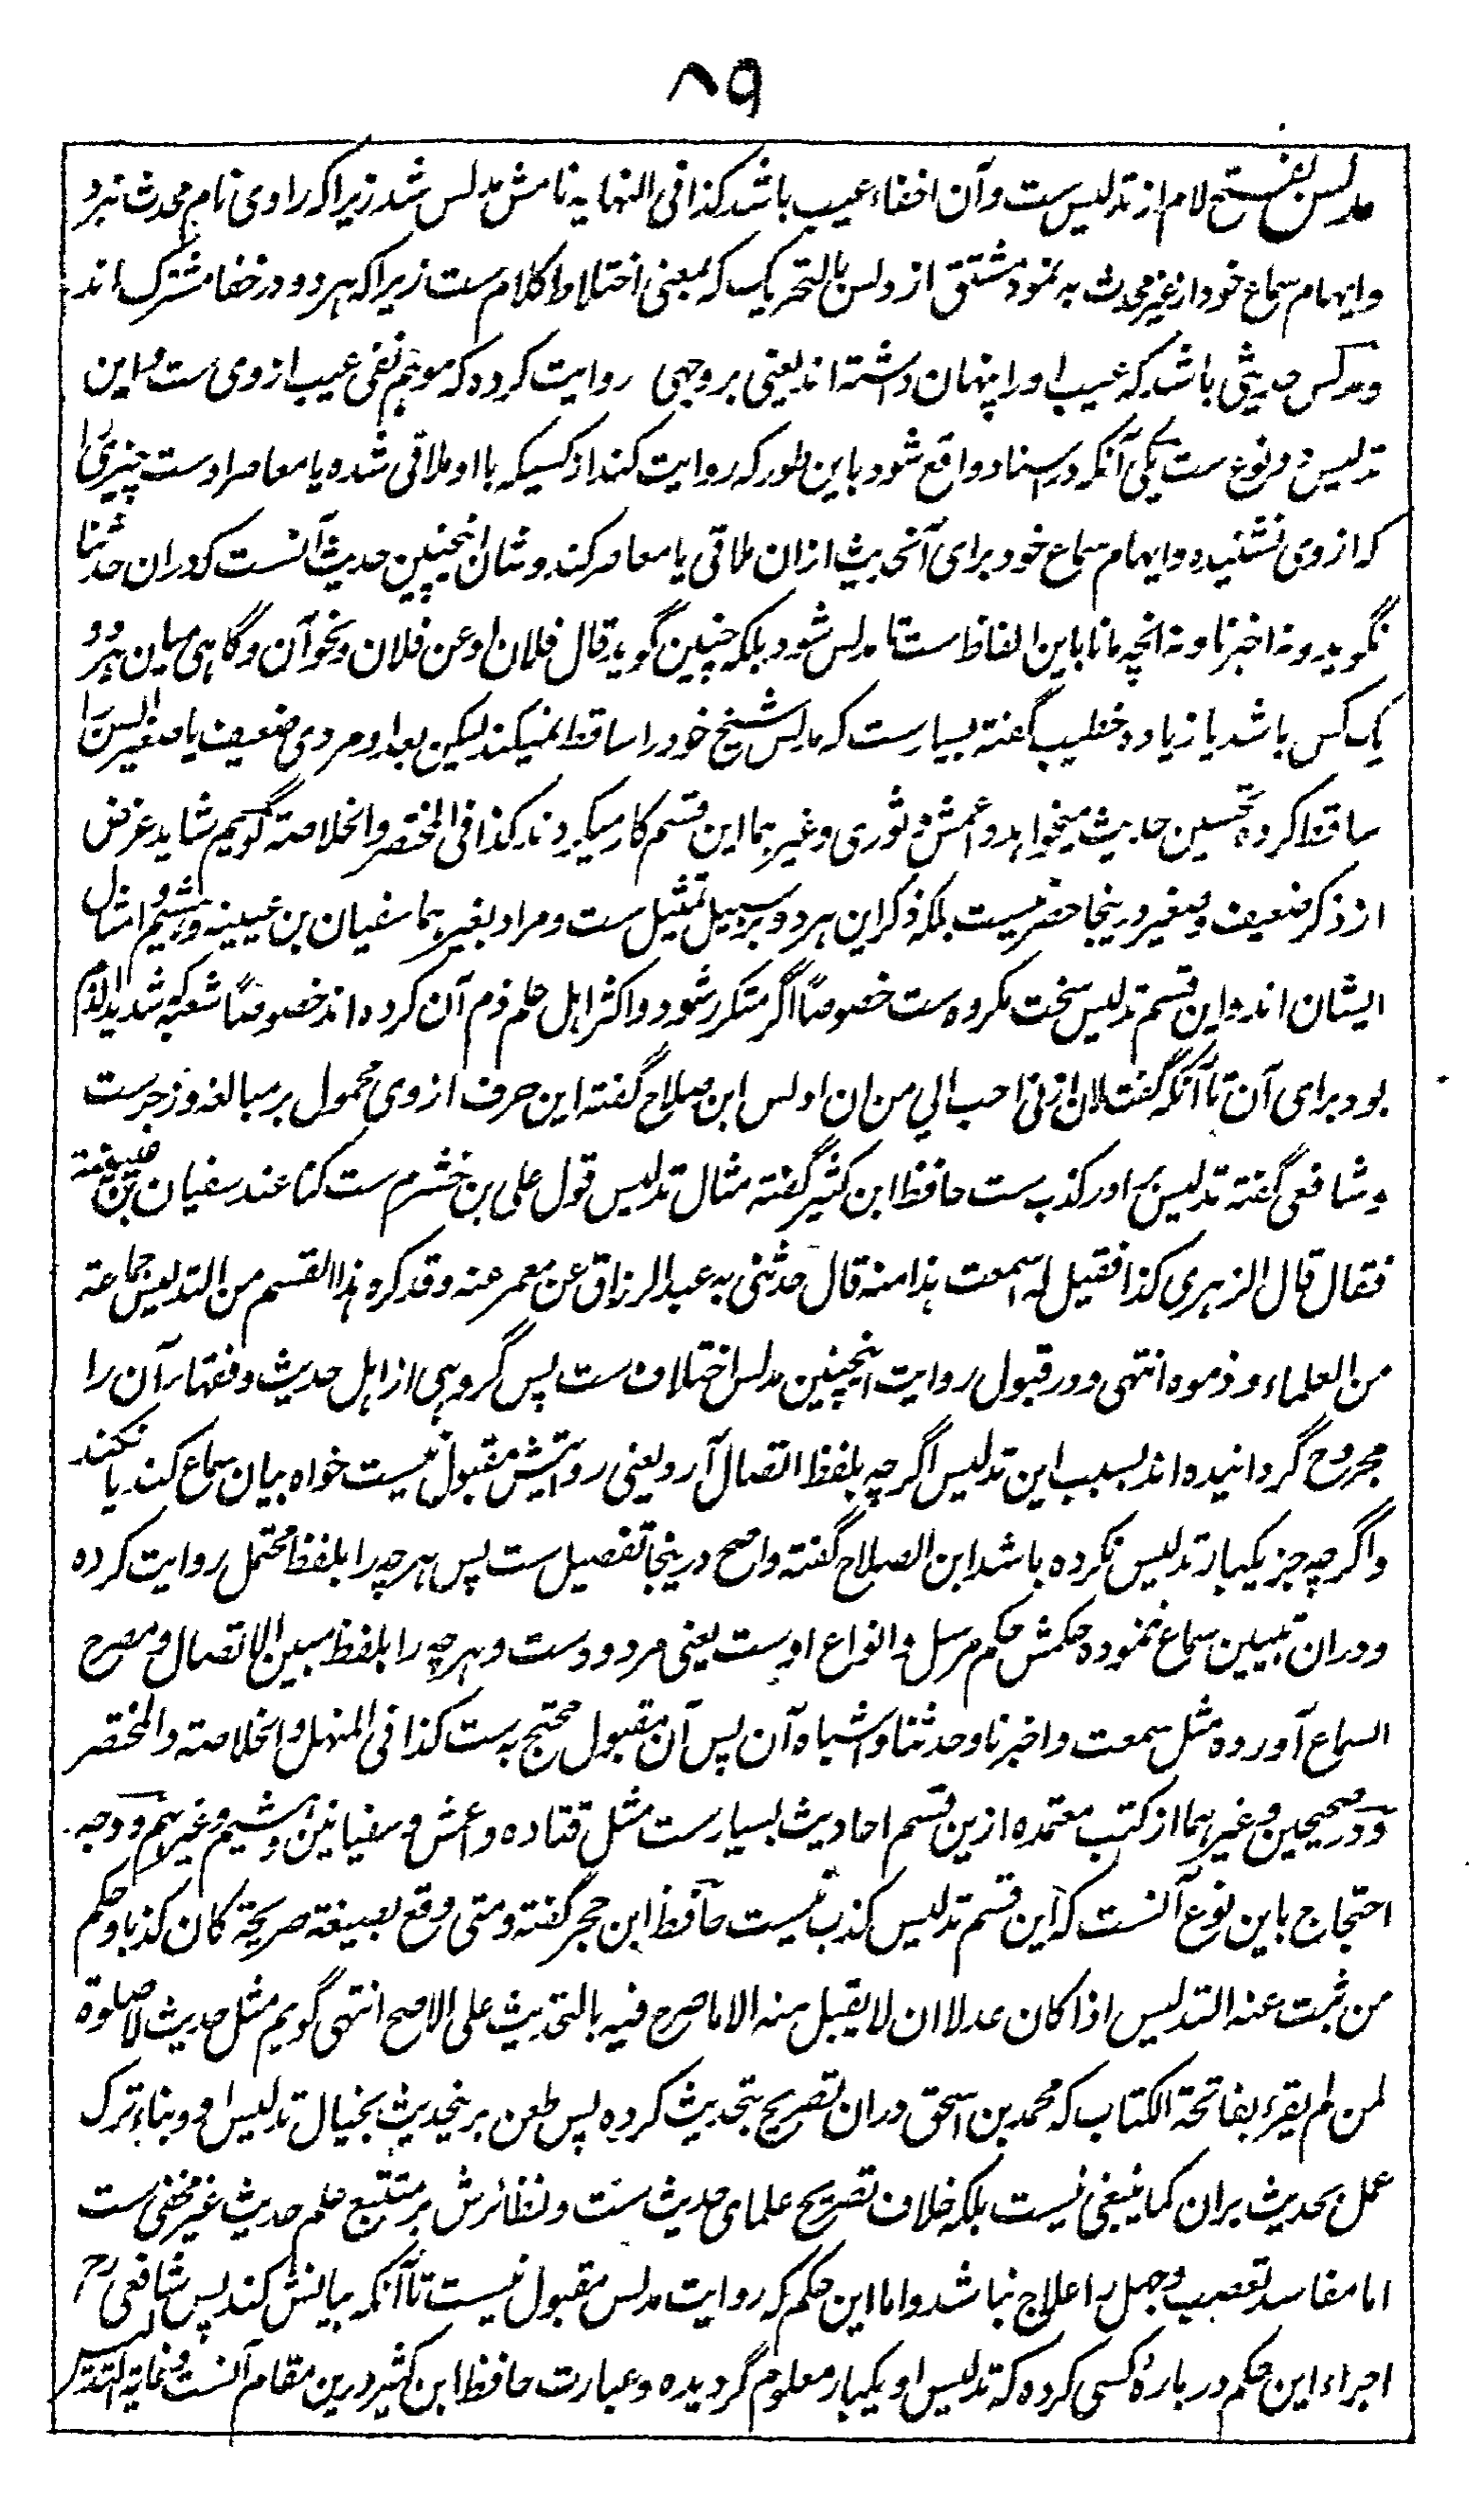 ۸۹
مدلس بفتح لام از تدلیس ست وآن اخفاء عیب باشد کذا فی النهایه نامش مدلس شد زیرا که راوی نام محدث نبرد
وایهام سماع خود از غیر محدث به نمود مشتق از دلس بالتحریک که بمعنی اختلاط کلام ست زیرا که هر دو در خفا مشترک اند
ومدلس حدیثی باشد که عیب او را پنهان داشته اند یعنی بروجهی روایت کرده که موهم نفی عیب ازوی ست واین
تدلیس دو نوع ست یکی آنکه در اسناد واقع شود باین طور که روایت کند از کسیکه با او ملاقی شده یا معاصر اوست چیزی را
که ازوی نشنیده وایهام سماع خود برای آنحدیث ازان ملاقی یا معاصر کند وشان اینچنین حدیث آنست که دران حدثنا
نگوید ونه اخبرنا ونه انچه مانا باین الفاظ ست تا مدلس شود بلکه چنین گوید قال فلان او عن فلان ونحو آن وگاهی میان هر دو
یک کس باشد یا زیاده خطیب گفته بسیارست که مدلس شیخ خود را ساقط نمیکند لیکن بعد او مردی ضعیف یا صغیر السن را
ساقط کرده تحسین حدیث میخواهد واعمش وثوری وغیرهما این قسم کار میکردند کذا فی المختصر والخلاصة گویم شاید غرض
از ذکر ضعیف وصغیر درینجا حصر نیست بلکه ذکر این هر دو بر سبیل تمثیل ست ومراد بغیرهما سفیان بن عیینه وهشیم وامثال
ایشان اند واین قسم تدلیس سخت مکروه ست خصوصاً اگر متکرر شود واکثر اهل علم ذم آن کرده اند خصوصاً شعبه که شدید الذم
بود برای آن تا آنکه گفت لان ازنی احب الي من ان ادلس ابن صلاح گفته این حرف ازوی محمول بر مبالغه وزجرست
وشافعی گفته تدلیس برادر کذب ست حافظ ابن کثیر گفته مثال تدلیس قول علی بن خشرم ست کنا عند سفیان بن عیینة
فقال قال الزهری کذا فقیل له اسمعت هذا منه قال حدثنی به عبد الرزاق عن معمر عنه وقد کره هذا القسم من التدلیس جماعة
من العلماء وذموه انتهی ودر قبول روایت اینچنین مدلس اختلاف ست پس گروهی از اهل حدیث وفقهاء آن را
مجروح گردانیده اند بسبب این تدلیس اگرچه بلفظ اتصال آرد یعنی روایتش مقبول نیست خواه بیان سماع کند یا نکند
واگرچه جز یکبار تدلیس نکرده باشد ابن الصلاح گفته واصح درینجا تفصیل ست پس هرچه را بلفظ محتمل روایت کرده
ودران تبیین سماع ننموده حکمش حکم مرسل وانواع اوست یعنی مردودست وهرچه را بلفظ مبین الاتصال ومصرح
السماع آورده مثل سمعت واخبرنا وحدثنا واشباه آن پس آن مقبول محتج به ست کذا فی المنهل والخلاصة والمختصر
ودر صحیحین وغیرهما از کتب معتمده ازین قسم احادیث بسیارست مثل قتاده واعمش وسفیانین وهشیم وغیرهم ووجه
احتجاج باین نوع آنست که این قسم تدلیس کذب نیست حافظ ابن حجر گفته ومتی وقع بصیغة صریحة کان کذبا وحکم
من ثبت عنه التدلیس اذا کان عدلا ان لا یقبل منه الا ما صرح فیه بالتحدیث علی الاصح انتهی گویم مثل حدیث لا صلوة
لمن لم یقرء بفاتحة الکتاب که محمد بن اسحق دران تصریح بتحدیث کرده پس طعن برینحدیث بخیال تدلیس او وبناء ترک
عمل بحدیث بران کما ینبغی نیست بلکه خلاف تصریح علمای حدیث ست ونظائرش بر متتبع علم حدیث غیر مخفی ست
اما مفاسد تعصب وجهل را علاج نباشد واما این حکم که روایت مدلس مقبول نیست تا آنکه بیانش کند پس شافعی رح
اجراء این حکم در بارهٔ کسی کرده که تدلیس او یکبار معلوم گردیده وعبارت حافظ ابن کثیر درین مقام آنست وغایة التدلیس